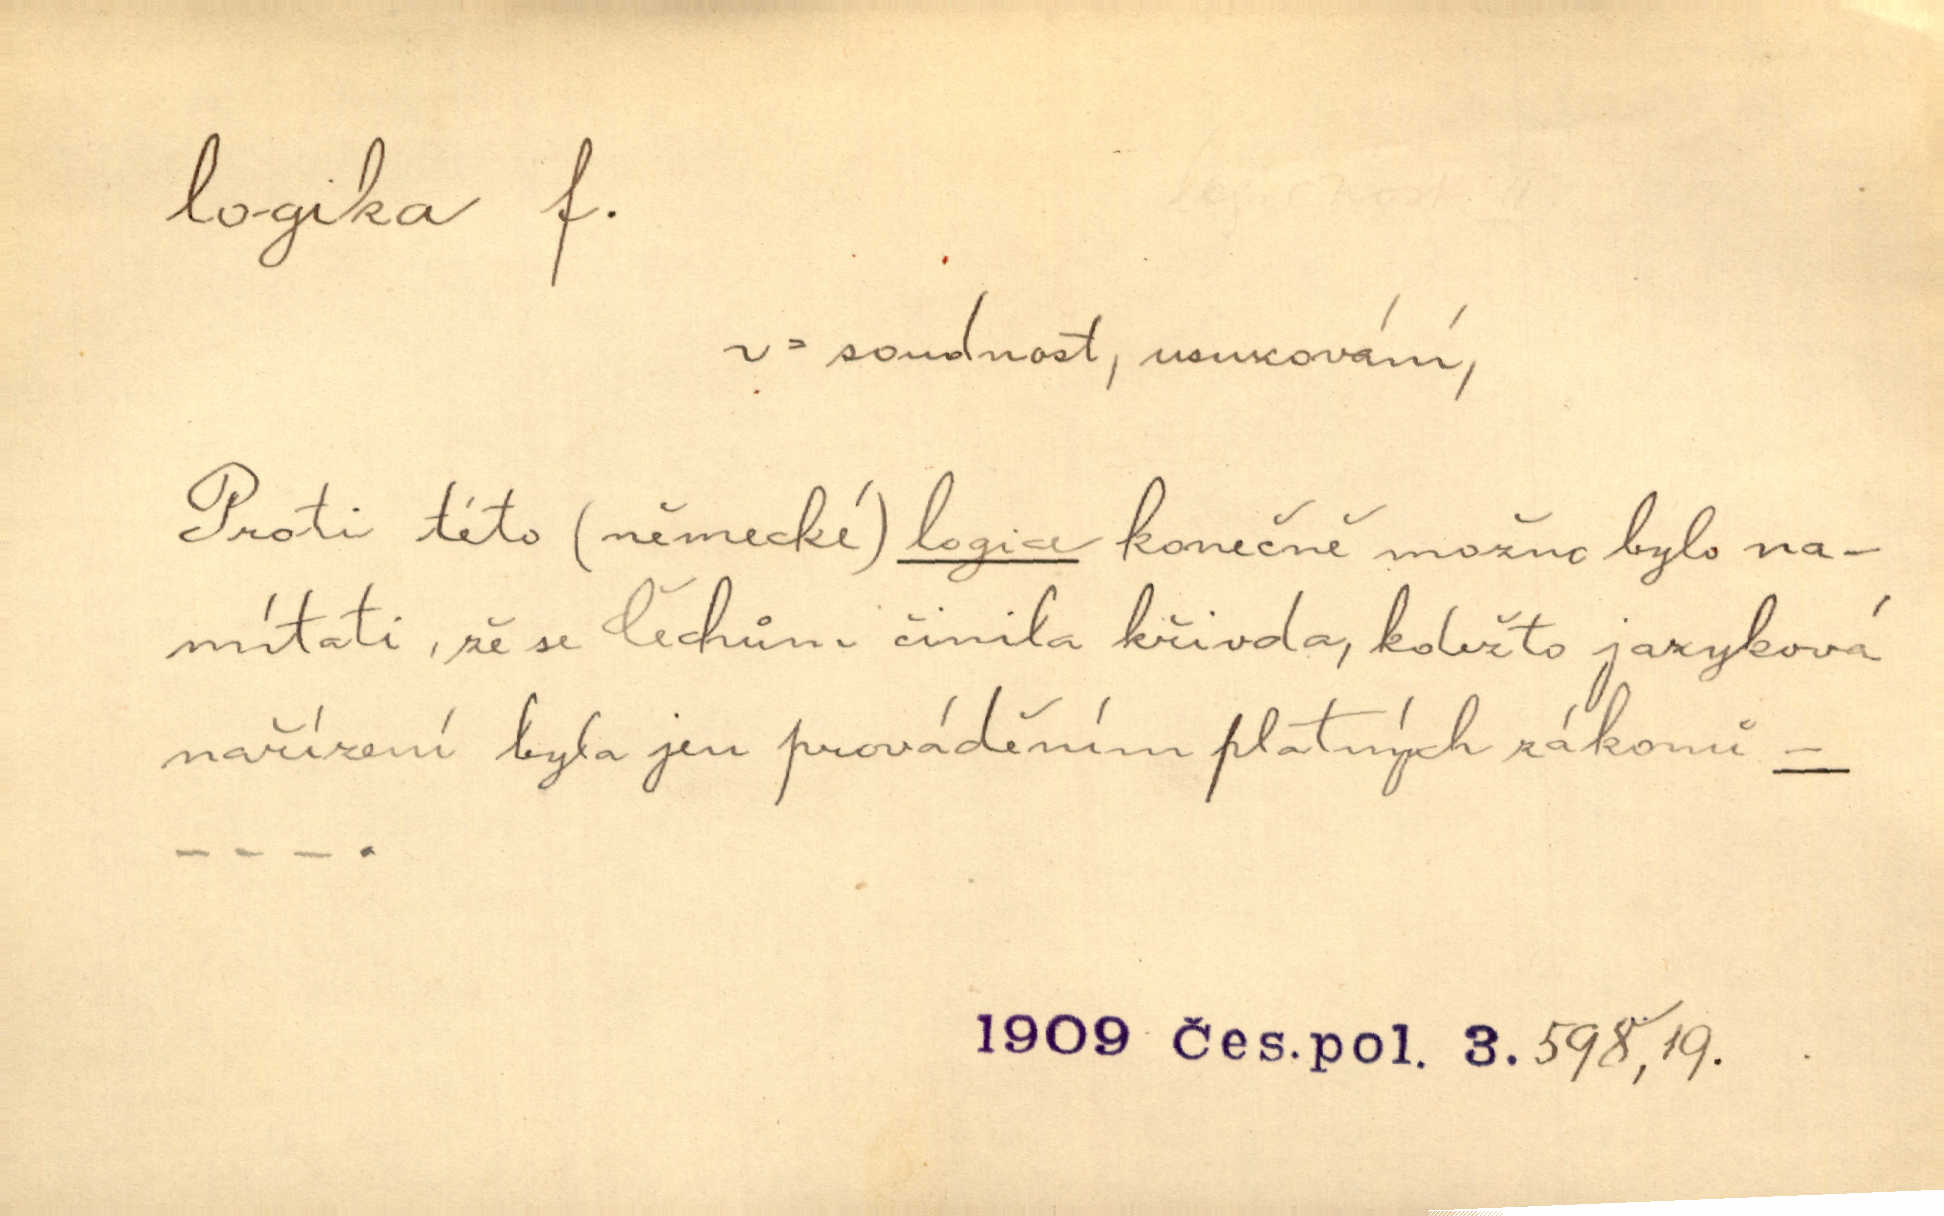 logika f.
v = soudnost, usuzování,
Proti této (německé) logice konečně možno bylo na-
mítati, že se Čechům činila křivda, kdežto jazyková
nařízení byla jen prováděním platných zákonů –
– – – .
1909 Čes. pol. 3. 598, 19.